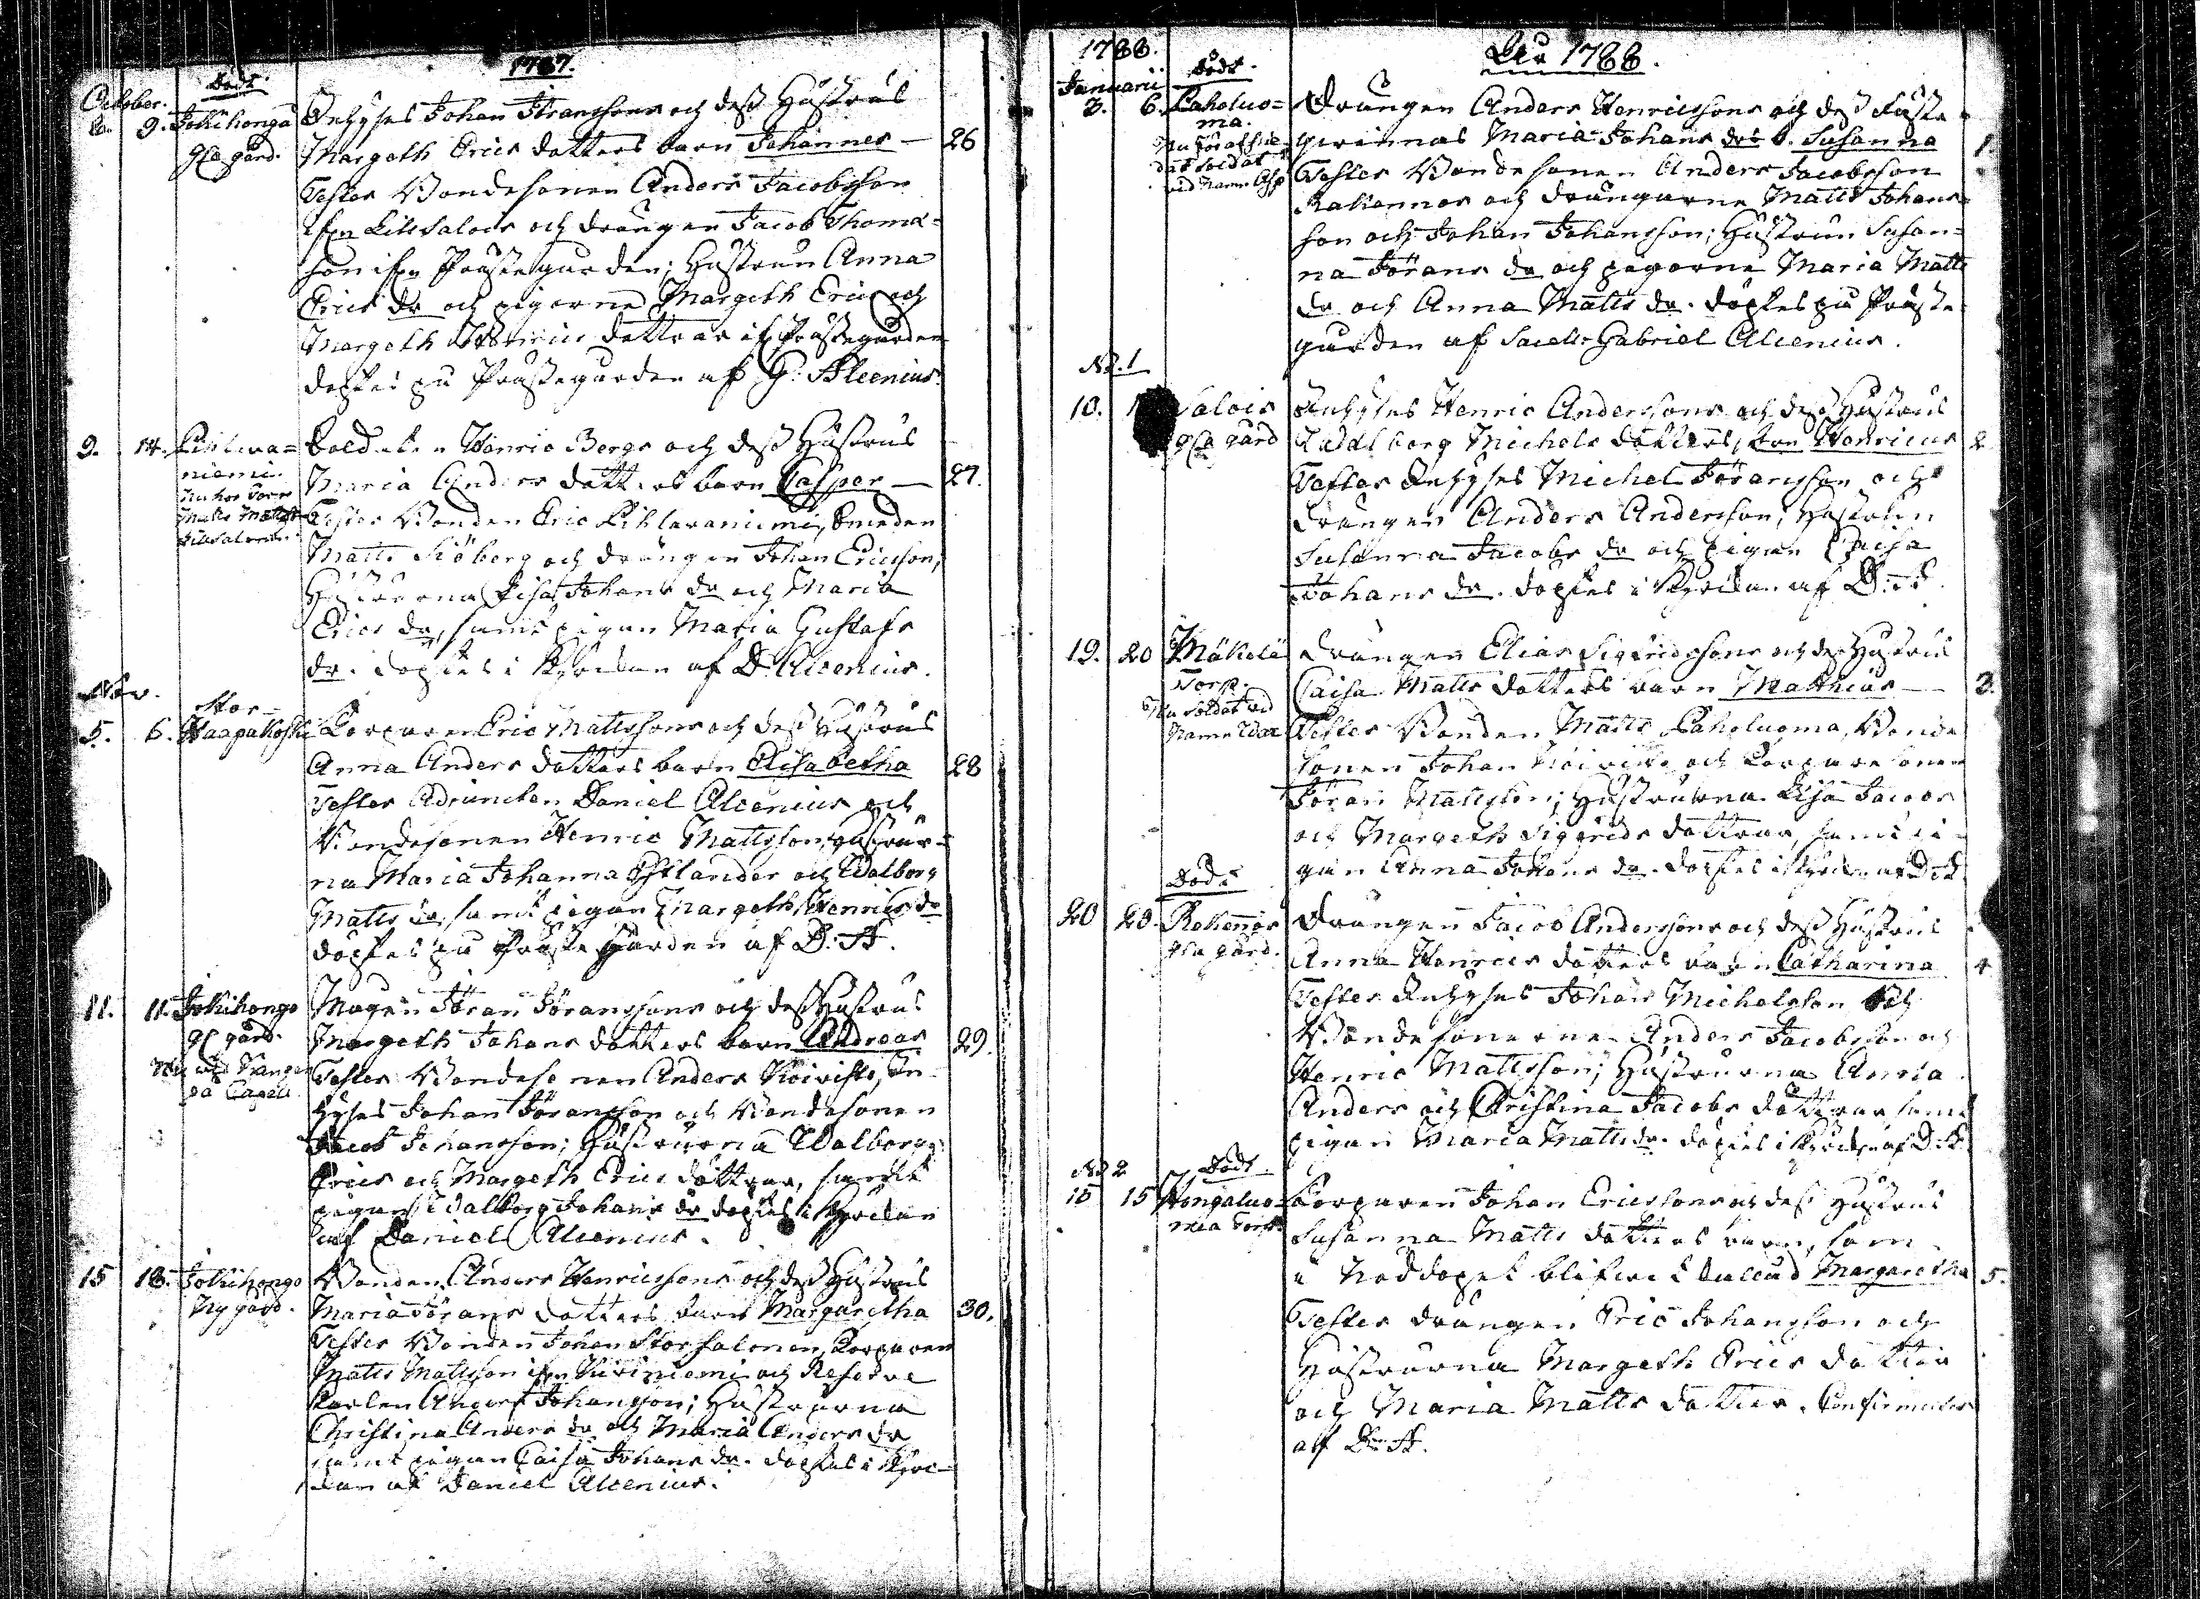 1787.
October. Dödt
8. 9. Jokihonga Inhyses Johan Jöranssons och dess Hustrus
gla gård. Margeth Erics dotters barn Johannes — 26
Testes Bondesonen Anders Jacobsson
ifrn Lillsalois och drängen Jacob Thomas-
son ifrn Prästegården; Hustrun Anna
Erics dr och pigorne Margeth Erics och
Margeth Henrics dottrar if Prästegården
döptes på Prästegården af G: Alcenius.
9. 14. Pihlava= Soldaten Henric Bergs och dess Hustrus
niemi. Maria Anders dotters barn Casper — 27.
Testes Bonden Eric Pihlavaniemi, Smeden
Matts Siöberg och drängen Johan Ericsson;
Hustrurna Lisa Johans dr och Maria
Erics dr, samt pigan Maria Gustafs
dr. döptes i Kyrckan af D. Alcenius.
Nov. Stor-
5. 6. Haapakoski Torparen Eric Mattssons och dess Hustrus
Anna Anders dotters barn Elisabetha 28
Testes Adjuncten Daniel Alcenius och
Bondesonen Henric Mattsson, Hustrur-
na Maria Johanna Estlander och Walborg
Matts dr, samt pigan Margeth Henrics dr
döptes på Prästegården af D: A.
11. 11. Jokihongo Mågen Jöran Jöranssons och dess Hustrus
gl gård. Margeth Johans dotters barn Andreas 29.
Testes Bondesonen Anders Koivisto, In-
hyses Johan Jöransson och Bondesonen
Jacob Johansson; Hustrurna Walborg
Erics och Margeth Erics döttrar, samt
pigan Walborg Johans dr döptes i Kyrckan
af Daniel Alcenius.
15 18. Jokihongo Bonden Anders Henricssons och dess Hustrus
Ny gård. Maria Jörans dotters barn Margaretha 30.
Testes Bonden Johan Storsalonen, Torparen
Matts Mattsson ifrn Kiviniemi och Reserve
Karlen Anders Johansson; Hustrurna
Christina Anders dr och Maria Anders dr
samt pigan Caisa Johans dr. döptes i Kyrc-
kan af Daniel Alcenius.
1788. År 1788.
Januarii Dödt.
3. 6. Paholuo= Drängen Anders Henricssons och dess Fäste-
ma. qwinnas Maria Johans drs b. Susanna 1.
Testes Bondesonen Anders Jacobsson
Rahkonnos och drängarne Matts Johans-
son och Johan Johansson; Hustrun Susan-
na Jörans dr och pigorne Maria Matts
dr och Anna Matts dr. döptes på Präste-
gården af Sacell. Gabriel Alcenius.
No. 1
10. Salois Inhyses Henric Anderssons och dess Hustrus
gla gård Walborg Michels dotters, barn Henricus 2.
Testes Inhyses Michel Jöransson och
drängen Anders Andersson; Hustrun
Susanna Jacobs dr och pigan Caisa
Johans dr. döptes i Kyrckan af D: A.
19. 20 Mäkelä Drängen Elias Sigfridssons och dess Hustrus
Torp. Caisa Matts dotters barn Matthias — 3.
Nu Soldat vid
Testes Bonden Matts Paholuoma, Bonde
sonen Johan Koivisto och Torparesonen
Jöran Mattsson; Hustrurna Lisa Jacobs
och Margeth Sigfrids dottrar, samt pi-
gan Anna Johans dr. döptes i Kyrckan af D: A.
Dödt
20 20. Rokennos Drängen Jacob Anderssons och dess Hustrus
gla gård. Anna Henrics dotters barn Catharina 4
Testes Inhyses Johan Michelsson och
Bondesonerne Anders Jacobsson och
Henric Mattsson; Hustrurna Anna
Anders och Christina Jacobs döttrar samt
pigan Maria Matts dr. döptes i Kyrckan af D: A.
No 2 Dödt
15 15 Hongaluo- Torparen Johan Ericssons och dess Hustrus
ma Torp. Susanna Matts dotters barn, som
i Nöddopet blifwit kallad Margaretha 5.
Testes drängen Eric Johansson och
Hustrurna Margeth Erics dotter
och Maria Matts dotter. Confirmeltes
af D: A.